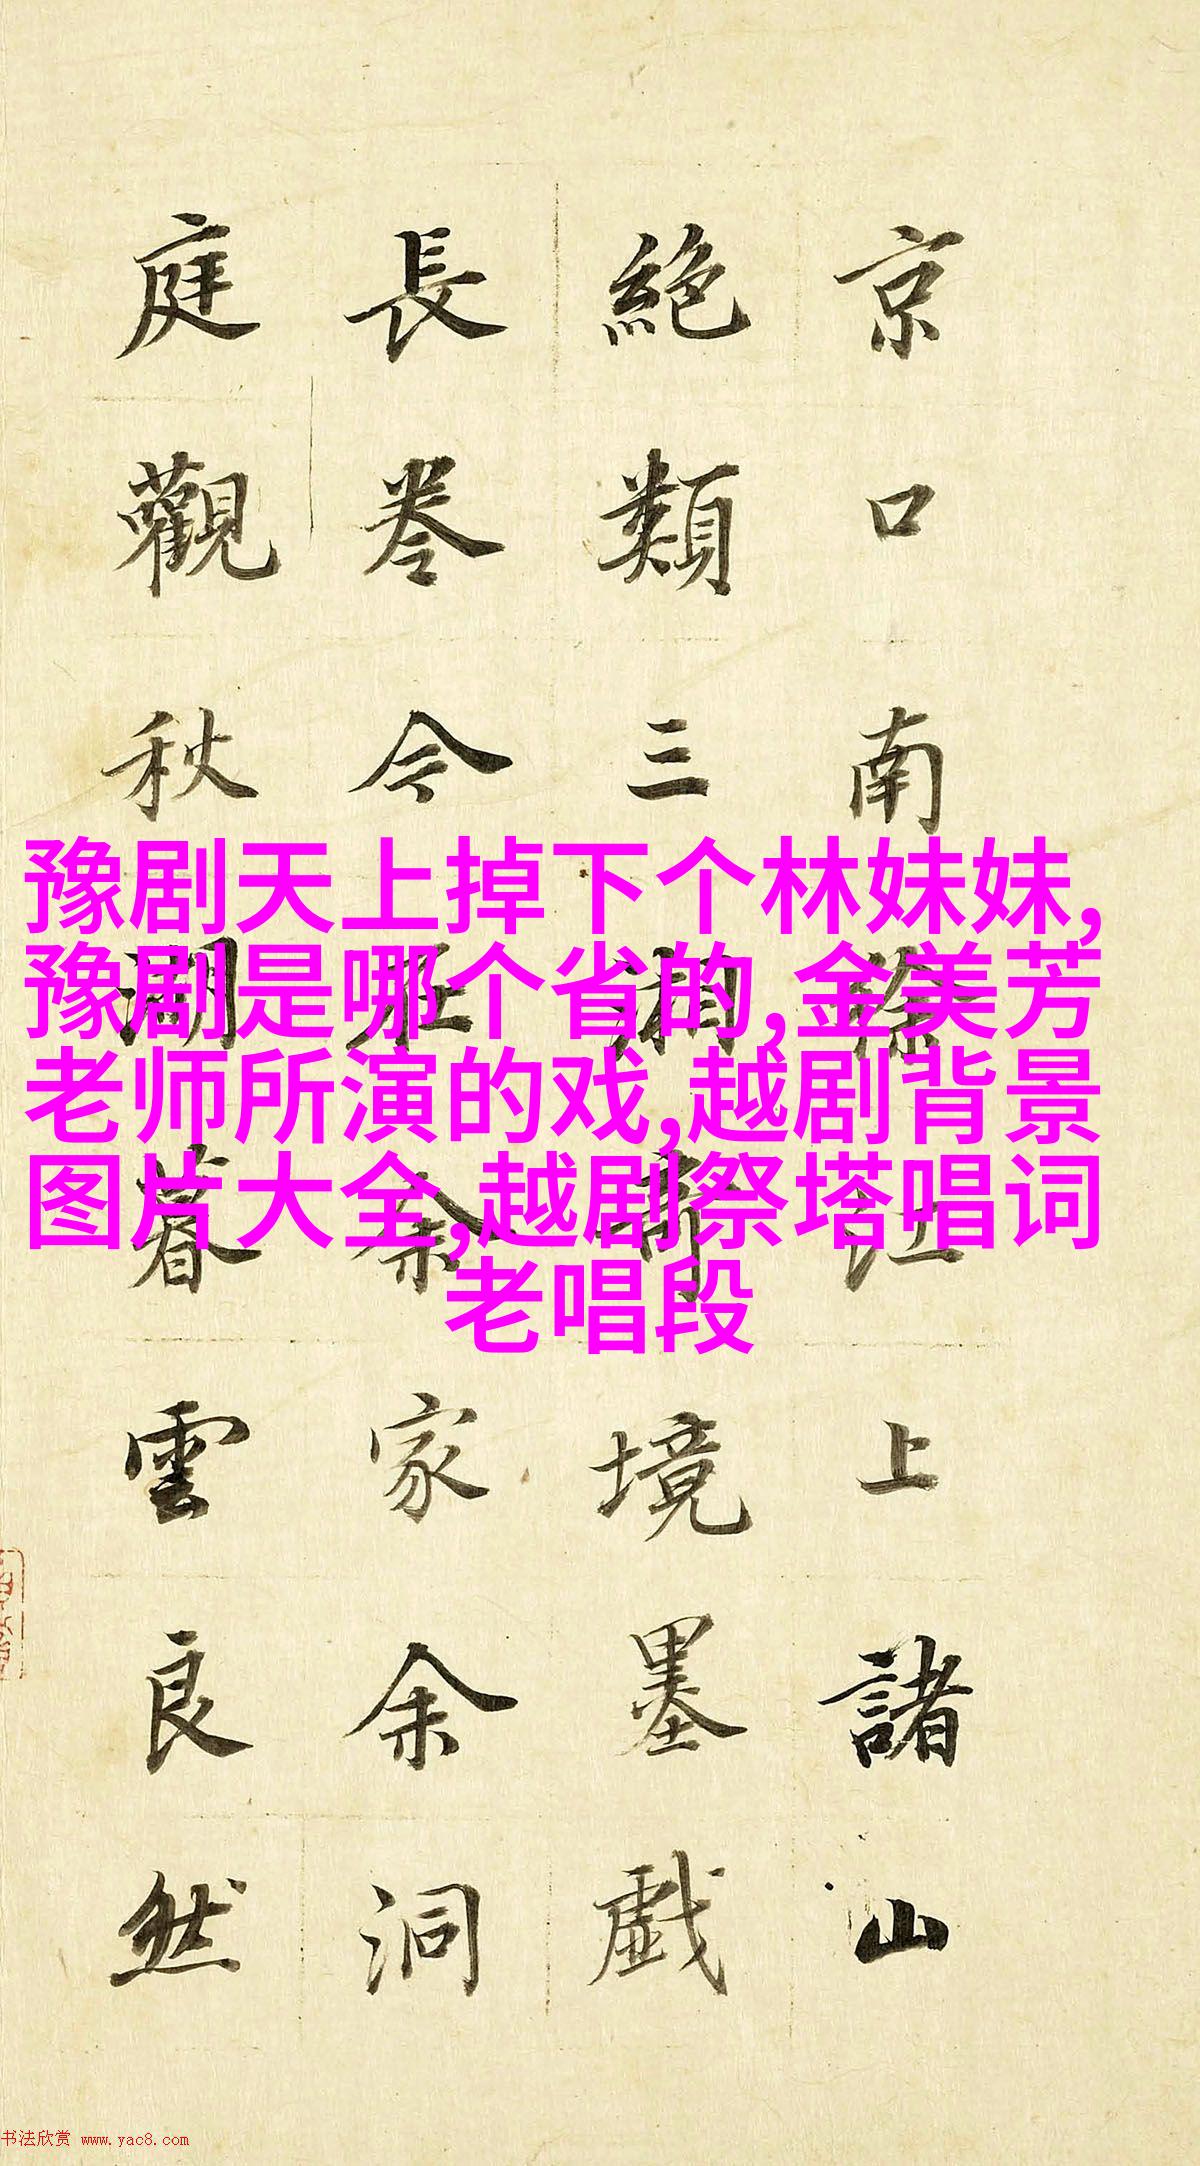 京口南徐江上諸山
絶類三湘奇境墨戲
長卷今在余家余洞
庭觀秋湖暮雲良然
豫剧天上掉下个林妹妹,
豫剧是哪个省的,金美芳
老师所演的戏,越剧背景
图片大全,越剧祭塔唱词
老唱段
书法欣赏 www.yac8.com